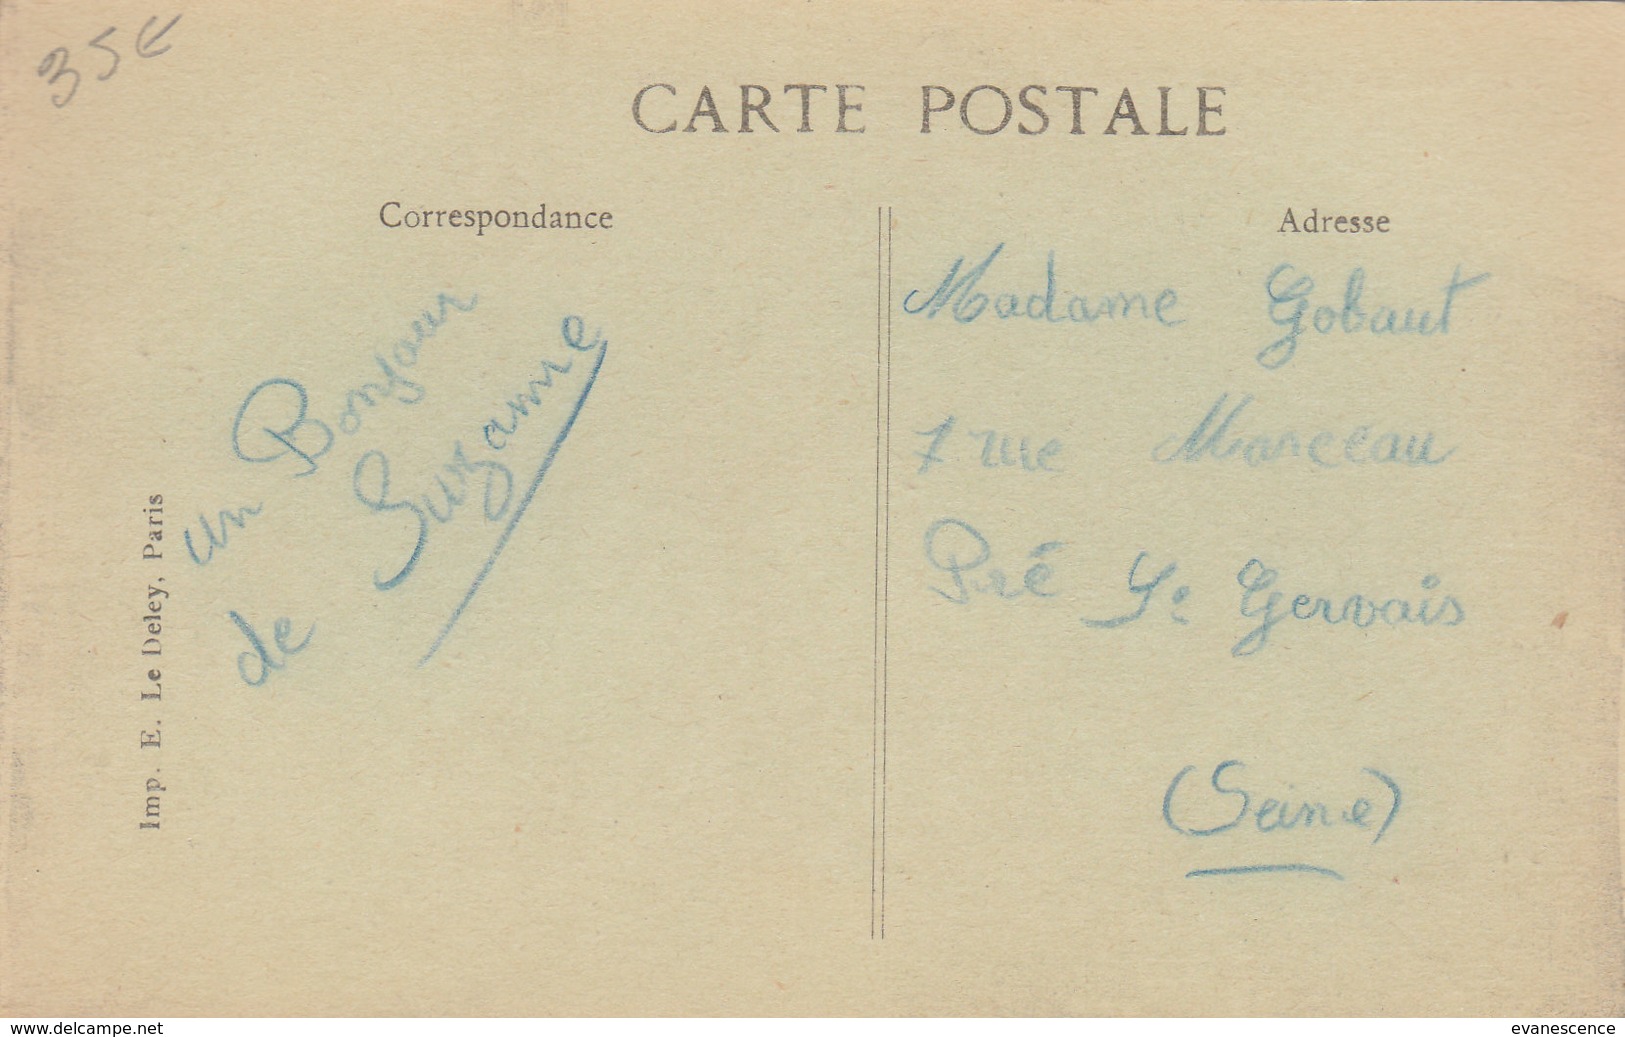 35€
CARTE POSTALE
Correspondance
Adresse
un Bonjour
de Suzanne
Madame Gobaut
7 rue Marceau
Pré St Gervais
(Seine)
Imp. E. Le Deley, Paris
www.delcampe.net
evanescence